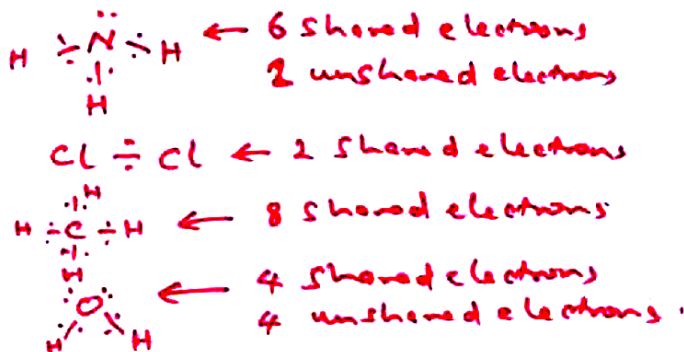 H N H ← 6 shared electrons
H 2 unshared electrons
Cl ÷ Cl ← 2 shared electrons
H
H C H ← 8 shared electrons
H
O ← 4 shared electrons
H H 4 unshared electrons.